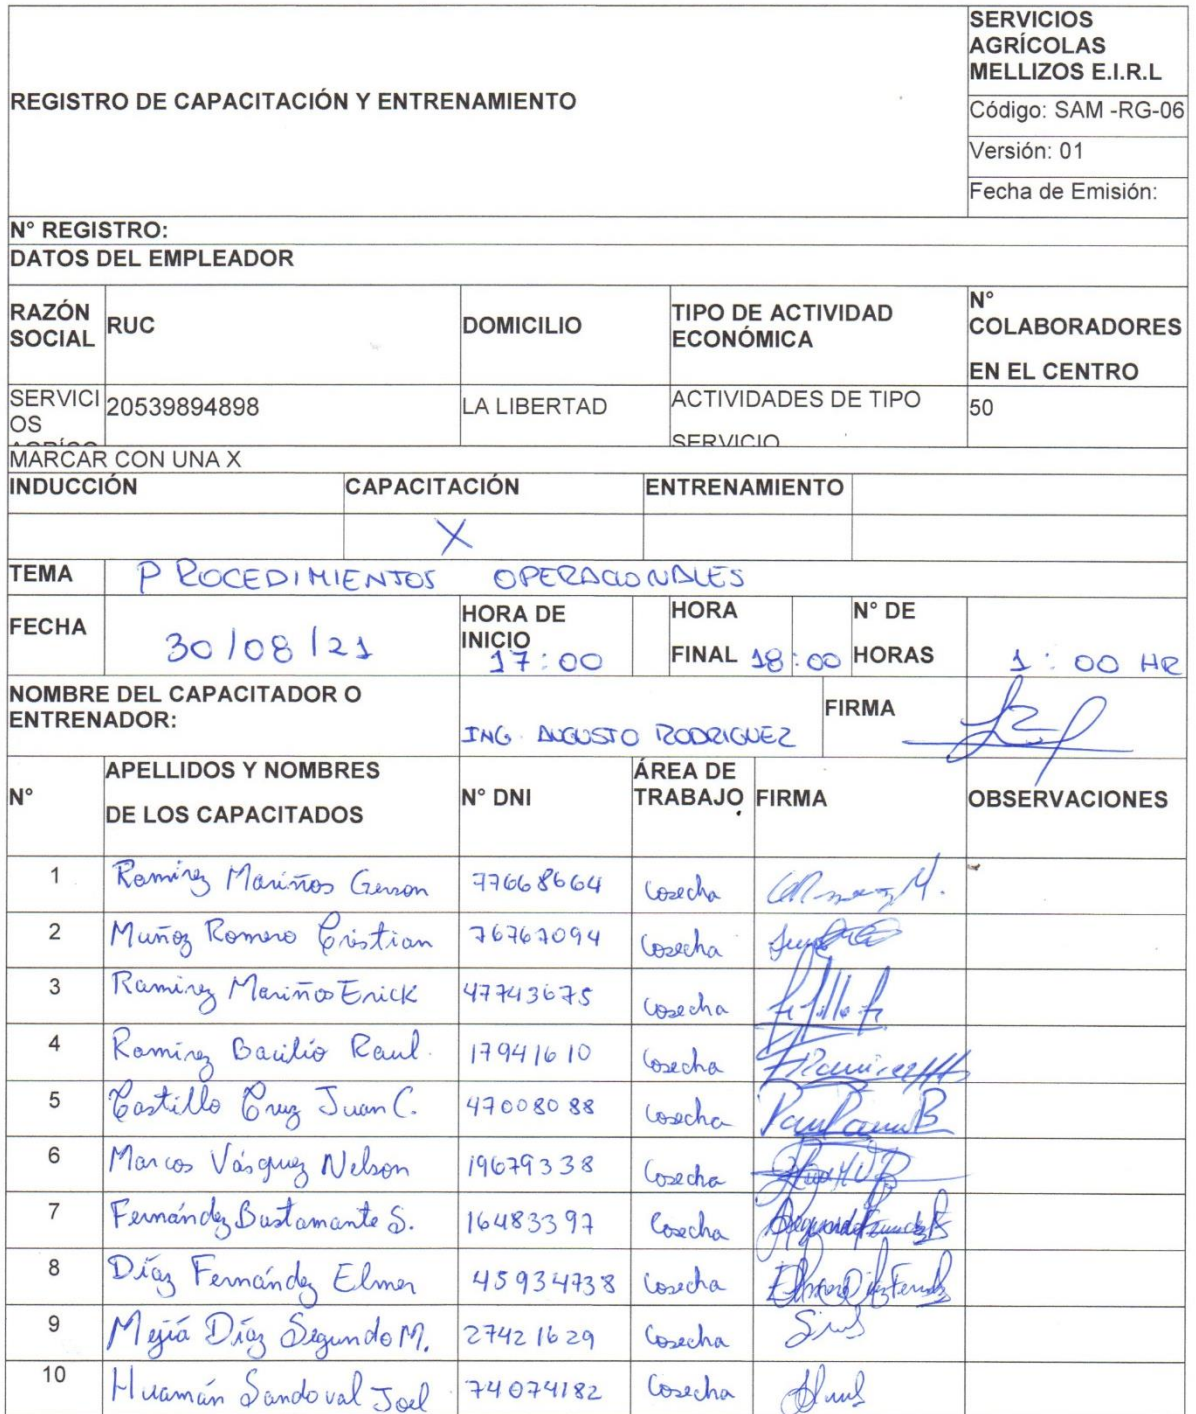 REGISTRO DE CAPACITACIÓN Y ENTRENAMIENTO
SERVICIOS
AGRÍCOLAS
MELLIZOS E.I.R.L
Código: SAM -RG-06
Versión: 01
Fecha de Emisión:
N° REGISTRO:
DATOS DEL EMPLEADOR
RAZÓN SOCIAL RUC DOMICILIO TIPO DE ACTIVIDAD ECONÓMICA N° COLABORADORES EN EL CENTRO
SERVICIOS AGRÍCO 20539894898 LA LIBERTAD ACTIVIDADES DE TIPO SERVICIO 50
MARCAR CON UNA X
INDUCCIÓN CAPACITACIÓN ENTRENAMIENTO
X
TEMA PROCEDIMIENTOS OPERACIONALES
FECHA 30/08/21 HORA DE INICIO 17:00 HORA FINAL 18:00 N° DE HORAS 1:00 HR
NOMBRE DEL CAPACITADOR O ENTRENADOR: ING. AUGUSTO RODRIGUEZ FIRMA
N° APELLIDOS Y NOMBRES DE LOS CAPACITADOS N° DNI ÁREA DE TRABAJO FIRMA OBSERVACIONES
1 Ramírez Mariños Gerson 77668664 Cosecha
2 Muñoz Romero Cristian 76767094 Cosecha
3 Ramirez Mariños Erick 47743675 Cosecha
4 Ramirez Bacilio Raul. 17941610 Cosecha
5 Castillo Cruz Juan C. 47008088 Cosecha
6 Marcos Vásquez Nelson 19679338 Cosecha
7 Fernández Bustamante S. 16483397 Cosecha
8 Díaz Fernández Elmer 45934738 Cosecha
9 Mejiá Díaz Segundo M. 27421629 Cosecha
10 Huamán Sandoval Joel 74074182 Cosecha